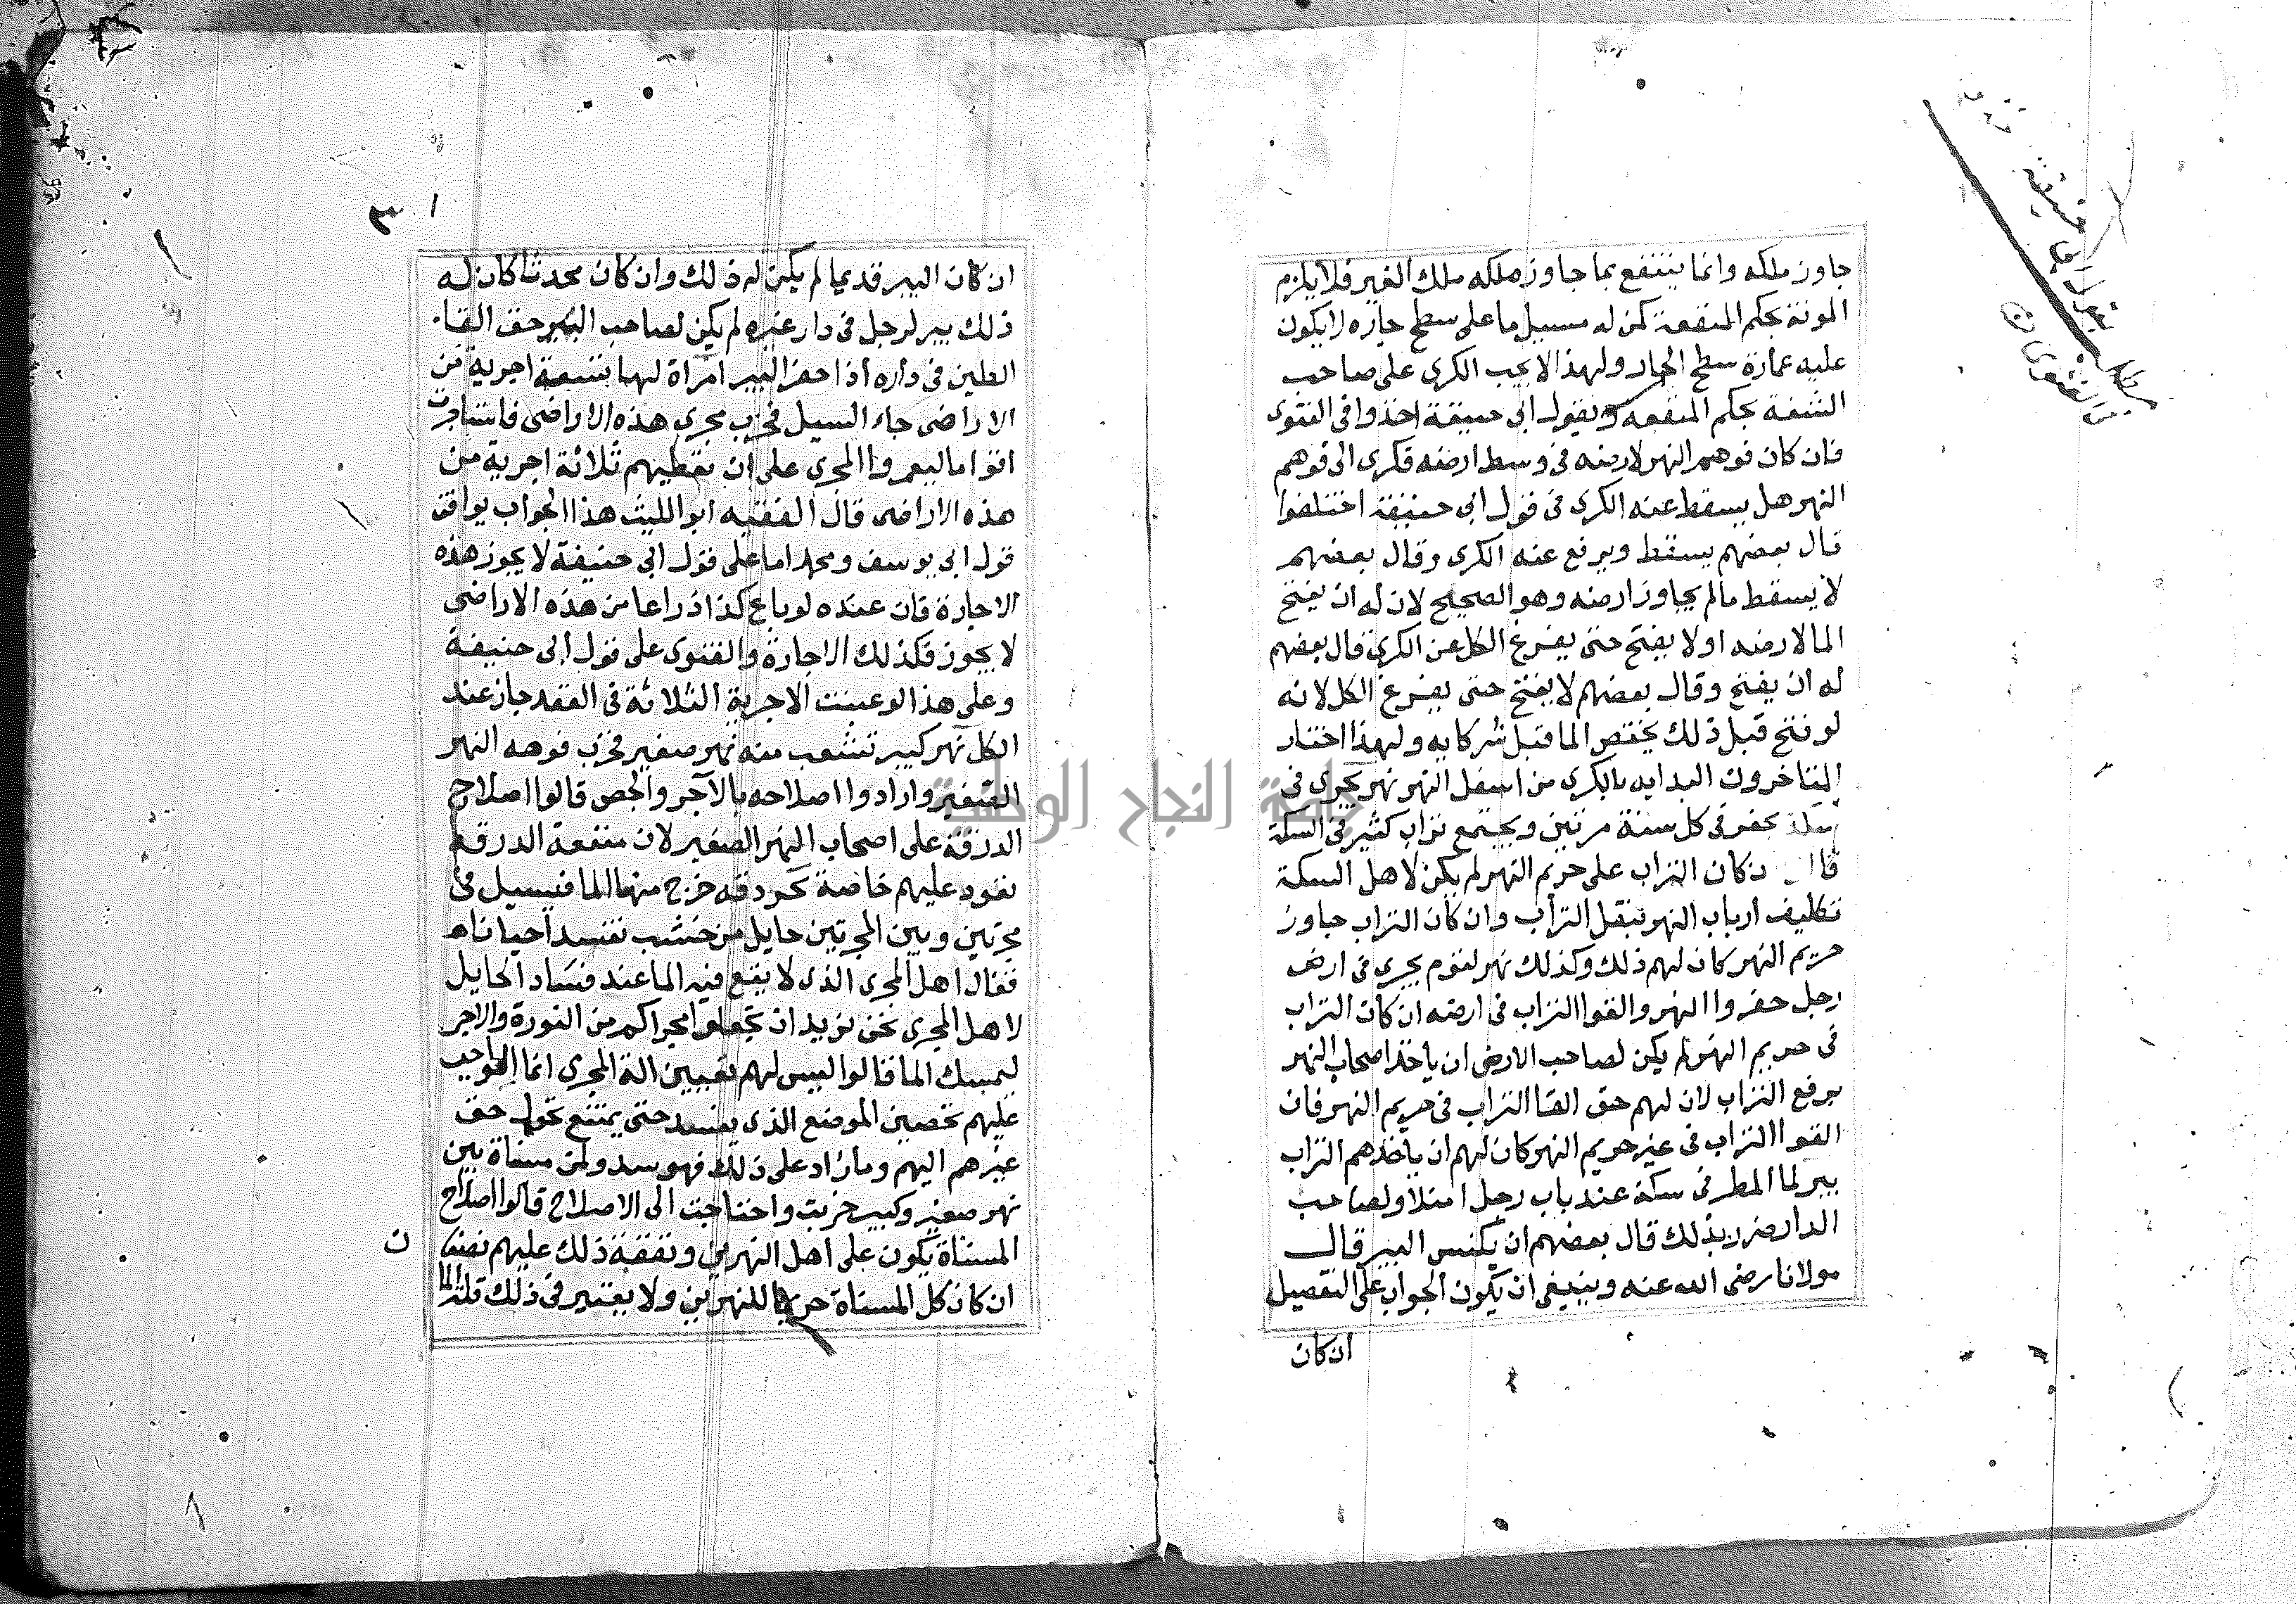 جاوز ملكه وانما ينتفع بما جاوز ملكه ملك الغير فلا يلزم
المونة بحكم المنفعة كمن له مسيل ما على سطح جاره لا يكون
عليه عمارة سطح الجار ولهذا لا يجب الكرى على صاحب
الشفة بحكم المنفعه وبقول ابى حنيفة اخذوا فى الفتوى
فان كان فوهة النهر لارضه فى وسط ارضه فكرى الى فوهة
النهر هل يسقط عنه الكرى فى قول ابى حنيفة اختلفوا
قال بعضهم يسقط ويرفع عنه الكرى وقال بعضهم
لا يسقط ما لم يجاوز ارضه وهو الصحيح لان له ان يفتح
الما لارضه اولا يفتح حتى يفرغ الكل عن الكرى قال بعضهم
له ان يفتح وقال بعضهم لا يفتح حتى يفرغ الكل لانه
لو فتح قبل ذلك يختص الما قبل شركايه ولهذا اختار
المتاخرون البدايه بالكرى من اسفل النهر نهر يجرى فى
سكة يحفر فى كل سنة مرتين ويجتمع تراب كثير فى السكة
كان التراب على حريم النهر لم يكن لاهل السكة
تكليف ارباب النهر بنقل التراب وان كان التراب جاوز
حريم النهر كان لهم ذلك وكذلك نهر لقوم يجرى فى ارض
رجل حفروا النهر والقوا التراب فى ارضه ان كان التراب
فى حريم النهر لم يكن لصاحب الارض ان ياخذ اصحاب النهر
برفع التراب لان لهم حق القا التراب فى حريم النهر فان
القوا التراب فى غير حريم النهر كان لهم ان ياخذهم التراب
بير لما المطر فى سكة عند باب رجل امتلا ولصاحب
الدار ضرر بذلك قال بعضهم ان يكنس البير قال
مولانا رضى الله عنه وينبغى ان يكون الجواب على التفصيل
ان كان
٣
ان كان البير قديما لم يكن له ذلك وان كان محدثا كان له
ذلك بير لرجل فى دار غيره لم يكن لصاحب البير حق القا
الطين فى داره اذا حفر البير امراة لها تسعة اجربة من
الاراضى جاء السيل فخرب مجرى هذه الاراضى فاستاجرت
اقواما ليعمروا المجرى على ان تعطيهم ثلاثة اجربة من
هذه الاراضى قال الفقيه ابو الليث هذا الجواب يوافق
قول ابى يوسف ومحمد اما على قول ابى حنيفة لا يجوز هذه
الاجارة فان عنده لو باع كذا ذراعا من هذه الاراضى
لا يجوز فكذلك الاجارة والفتوى على قول ابى حنيفة
وعلى هذا لو عينت الاجربة الثلاثة فى العقد جاز عند
الكل نهر كبير تشعب منه نهر صغير فخرب فوهه النهر
الصغير وارادوا اصلاحه بالآجر والجص قالوا اصلاح
الدرقة على اصحاب النهر الصغير لان منفعة الدرقة
تعود عليهم خاصة كدرقه خرج منها الما فيسيل فى
مجرتين وبين المجرتين حايل من خشب تفسد احيانا
فقال اهل المجرى الذى لا يقع فيه الما عند فساد الحايل
لاهل المجرى نحن نريد ان تجعلوا مجراكم من النورة والاجر
ليمسك الما قالوا ليس لهم تعيين الة المجرى انما الواجب
عليهم تحصين الموضع الذى يفسد حتى يمتنع تحول حق
غيرهم اليهم وما زاد على ذلك فهو مسناة بين
نهر صغير وكبير خربت واحتاجت الى الاصلاح قالوا اصلاح
المسناة يكون على اهل النهرين ونفقة ذلك عليهم نصفا
ن
ان كان كل المسناة حريما للنهرين ولا يعتبر فى ذلك قلة الما
جامعة النجاح الوطنية